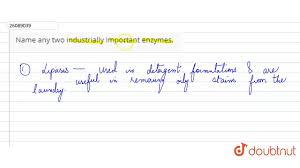 26089039
Name any two industrially important enzymes.
① Lipases — used in detergent formulations & are
useful in removing oily stains from the
laundry
doubtnut